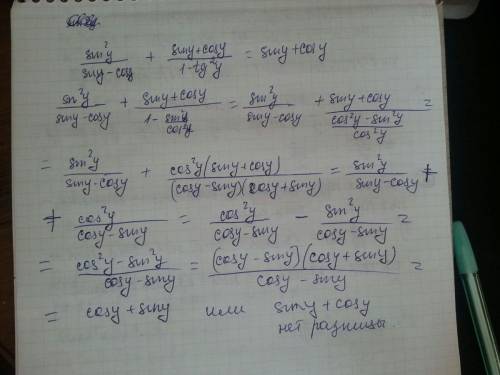 sin²y/(siny-cosy) + (siny+cosy)/(1-tg²y) = siny+cosy
sin²y/(siny-cosy) + (siny+cosy)/(1-sin²y/cos²y) = sin²y/(siny-cosy) + (siny+cosy)/((cos²y-sin²y)/cos²y) =
= sin²y/(siny-cosy) + cos²y(siny+cosy)/((cosy-siny)(cosy+siny)) = sin²y/(siny-cosy) +
+ cos²y/(cosy-siny) = cos²y/(cosy-siny) - sin²y/(cosy-siny) =
= (cos²y-sin²y)/(cosy-siny) = (cosy-siny)(cosy+siny)/(cosy-siny) =
= cosy+siny или siny+cosy
нет разницы.